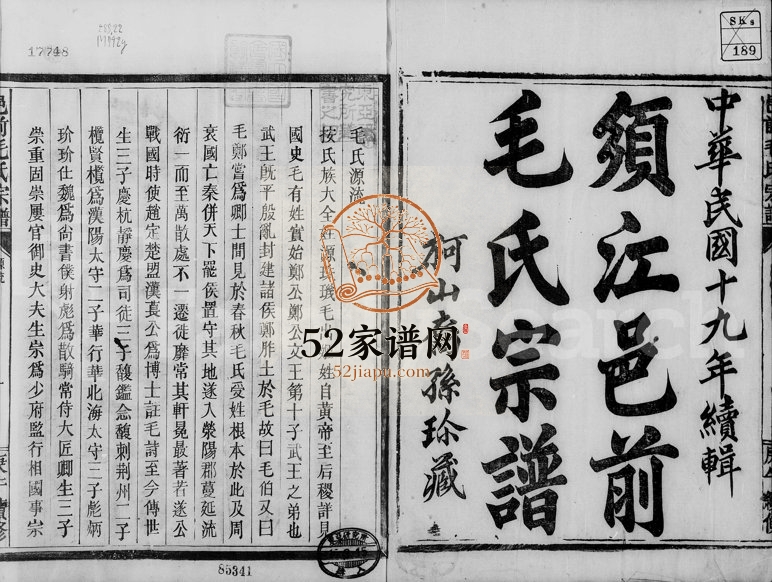 中華民國十九年續輯
須江邑前
毛氏宗譜
柯山
孫珍藏
SKs
189
17748
毛氏源流
按氏族大全
姓自黃帝至后稷詳見
國史毛有姓實始鄭公鄭公文王第十子武王之弟也
武王旣平殷亂封建諸侯鄭胙土於毛故曰毛伯又曰
毛鄭嘗爲卿士間見於春秋毛氏受姓根本於此及周
衰國亡秦併天下罷侯置守其地遂入滎陽郡蔓延流
衍一而至萬散處不一遷徙靡常其軒冕最著者遂公
戰國時使趙定楚盟漢萇公爲博士註毛詩至今傳世
生三子慶杭靜慶爲司徒三子馥鑑念馥刺荊州二子
欖賢欖爲漢陽太守二子華行華北海太守三子彪炳
玠玠仕魏爲尚書僕射彪爲散騎常侍大匠卿生三子
崇重固崇屢官御史大夫生宗爲少府監行相國事宗
邑前毛氏宗譜
52家谱网
52jiapu.com
85341